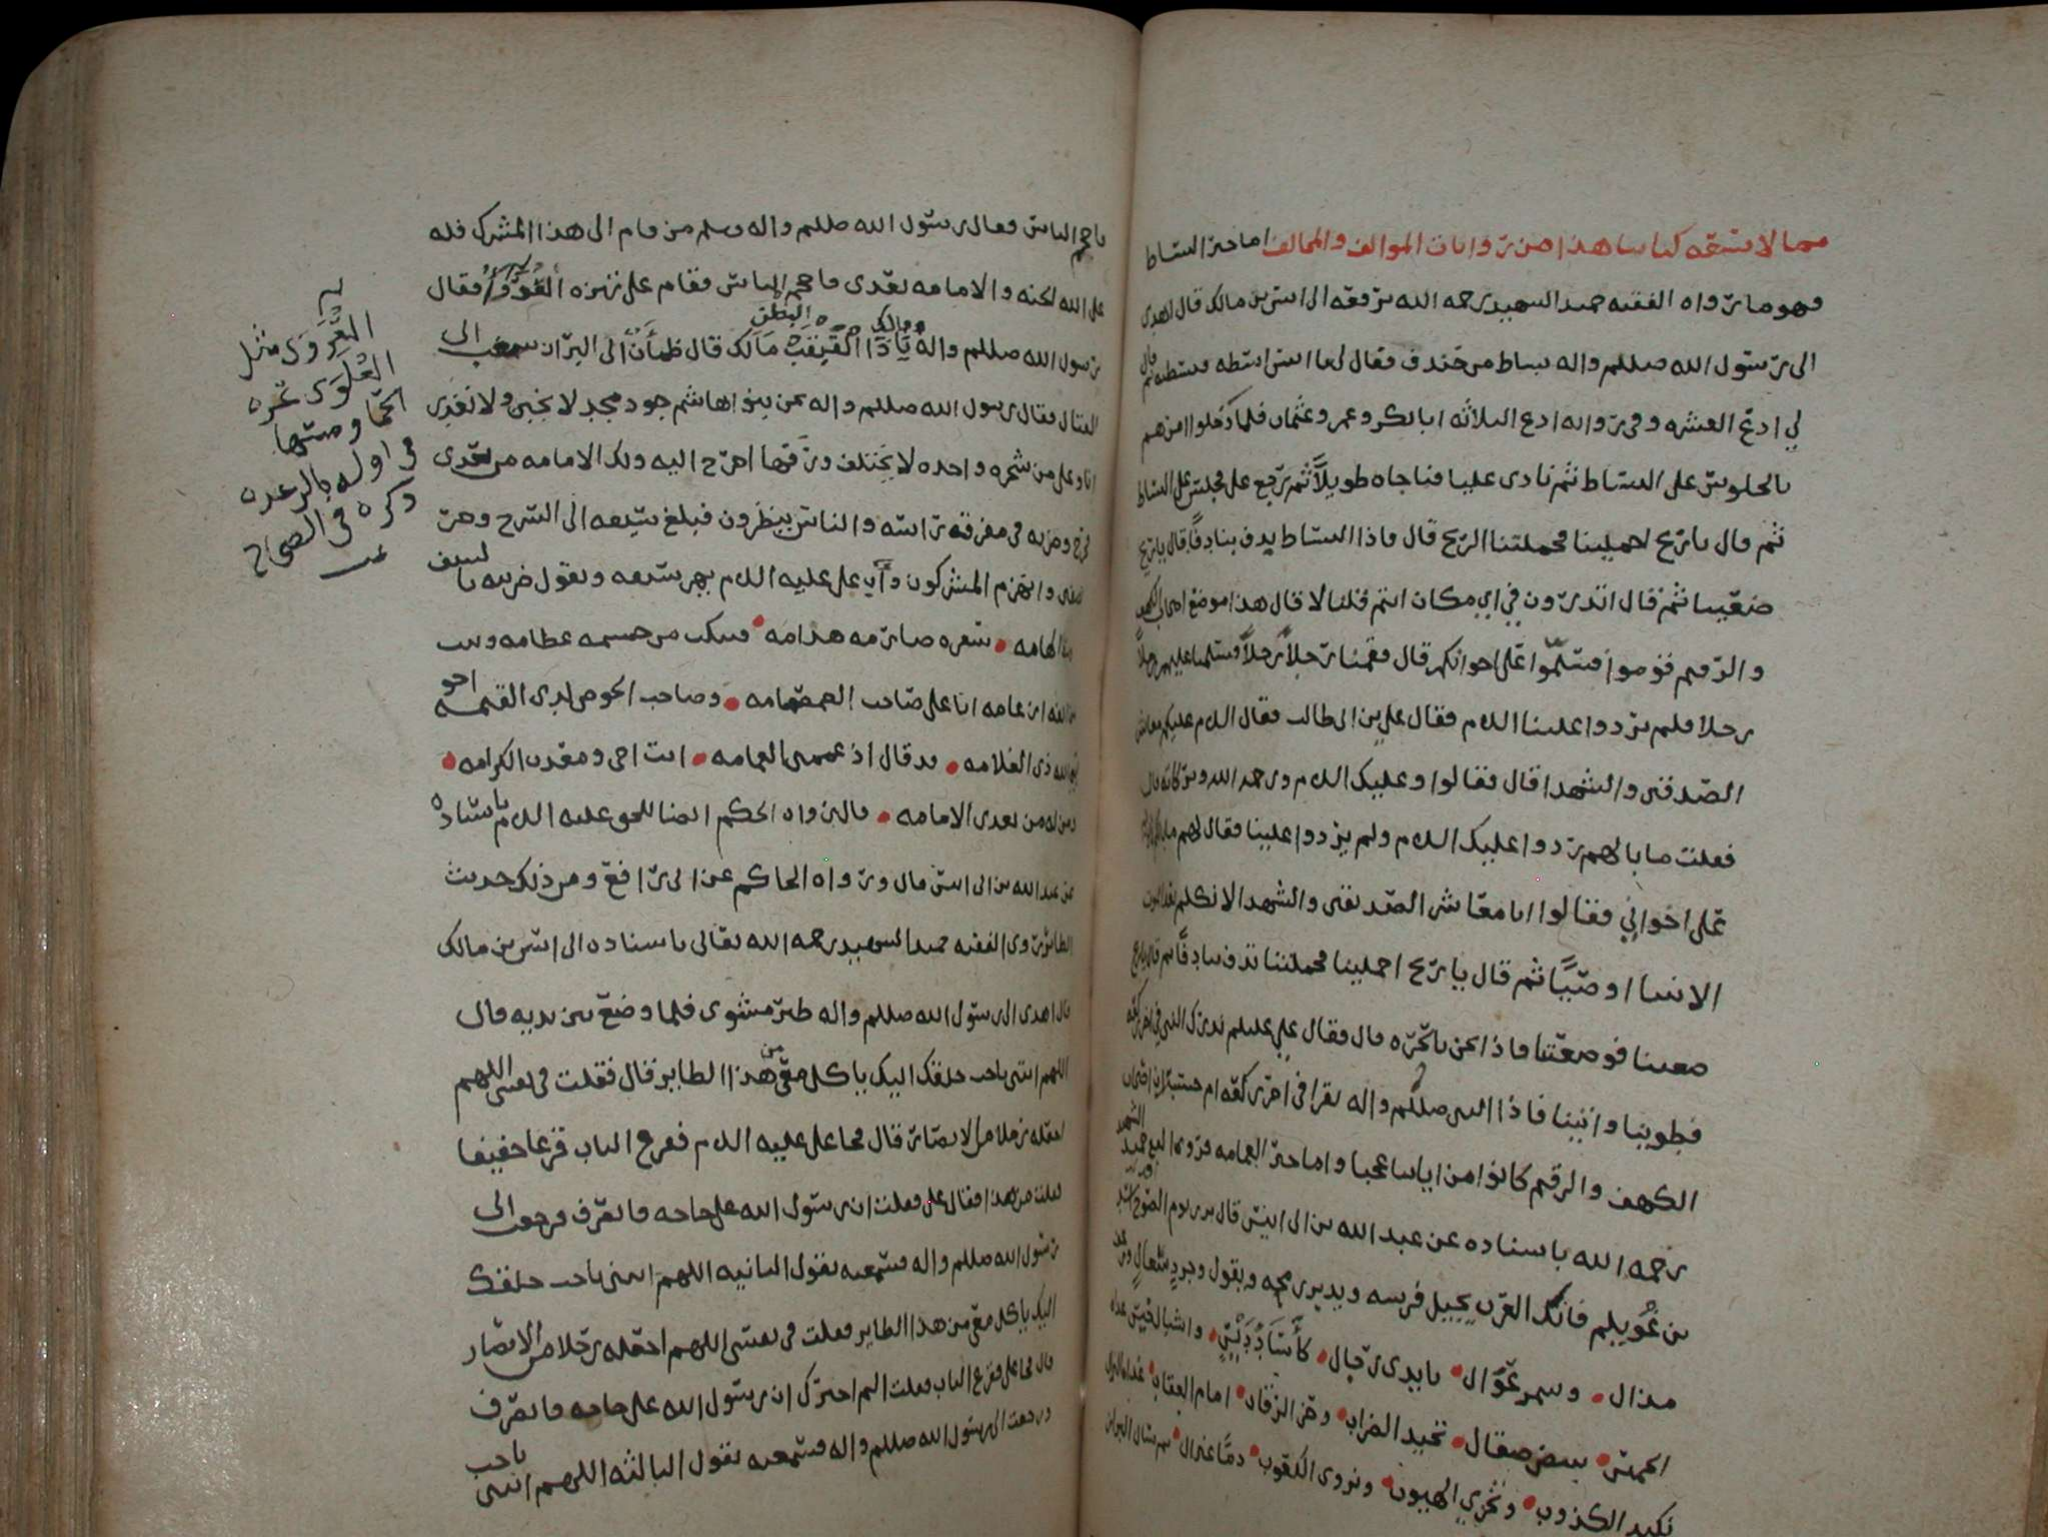 مما لا يسعه كتابنا هذا من روايات الموالف والمخالف اما خبر البساط
فهو ما رواه الفقيه حميد الشهيد رحمه الله يرفعه الى انس بن مالك قال اهدي
الى رسول الله صللم واله بساط من خندف فقال لي يا انس ابسطه فبسطته ثم قال
لي ادع العشره وفي روايه ادع الثلاثه ابا بكر وعمر وعثمان فلما دخلوا امرهم
بالجلوس على البساط ثم نادى عليا فناجاه طويلاً ثم رجع علي فجلس على البساط
ثم قال يا ريح احملينا فحملتنا الريح قال فاذا البساط يدف بنا دفا قال يا ريح
ضعينا ثم قال اتدرون في اي مكان انتم قلنا لا قال هذا موضع اصحاب الكهف
والرقيم قوموا فسلموا على اخوانكم قال فقمنا رجلاً رجلاً فسلمنا عليهم رجلاً
رجلا فلم يردوا علينا اللام فقال علي بن ابي طالب فقال اللام عليكم معاشر
الصديقين والشهدا قال فقالوا وعليك اللام ورحمه الله وبركاته قال
فقلت ما بالهم ردوا عليك اللام ولم يردوا علينا فقال لهم
على اخواني فقالوا انا معاشر الصديقين والشهدا لا نكلم بعد الموت
الا نبيا او وصيًا ثم قال يا ريح احملينا فحملتنا تدف بنا دفًا ثم قال يا ريح
ضعينا فوضعتنا فاذا نحن بالحره قال فقال علي عليلم ندرك النبي في اخر ركعه
فطوينا واتينا فاذا النبي صللم واله يقرا في اخر ركعه ام حسبت ان اصحاب
الكهف والرقيم كانوا من اياتنا عجبا واما خبر العمامه فروى الفقيه حميد الشهيد
رحمه الله باسناده عن عبد الله بن ابي انيس قال برز يوم
بن عويلم فاتك العرب يجيل فرسه ويدير رمحه ويقول وجرد سعالي
مذال • وسمر عوال • بايدي رجال • كأساد ديس • واشبال خيس
الخميس • ببيض صقال • تجيد الضراب • وحز الرقاب • امام العقاب • غداه النزال
تكيد الكذوب • وتخزي الهيوب • وتروي الكعوب • دمًا غير ال •
فاحجم الناس فقال رسول الله صللم واله وسلم من قام الى هذا المشرك فله
على الله الجنه والامامه بعدي فاحجم الناس فقام علي تهزه العُرَوَاءُ فقال
رسول الله صللم واله يَا ذَا القَبقَبْ مَالك قال ظمأن الى البراز سغب الى
القتال فقال رسول الله صللم واله نحن بنو هاشم جود مجد لا نجبن ولا نغدر
انا وعلي من شجره واحده لا يختلف ورقها اخرج اليه ولك الامامه من بعدي
فخرج وضربه في مفرقه راسه والناس ينظرون فبلغ سيفه الى السرج وخر
نصفين وانهزم المشركون وأب علي عليه اللام يهز سيفه ويقول ضربته بالسيف
وسط الهامه • بشفره صارمه هدامه • فبتكت من جسمه عظامه وبينت
من انفه ارغامه انا علي صاحب الصمصامه • وصاحب الحوض لدى القيمه اخو
نبي الله ذي العلامه • قد قال اذ عممني العمامه • انت اخي ومعدن الكرامه •
ومن له من بعدي الامامه • قال رواه الحكم ايضا للحق عليه اللام باسناده
عن عبد الله بن ابي انس قال ورواه الحاكم عن ابي رافع ومن ذلك حديث
الطائر روى الفقيه حميد الشهيد رحمه الله تعالى باسناده الى انس بن مالك
قال اهدي الى رسول الله صللم واله طير مشوي فلما وضع بين يديه قال
اللهم ائتني باحب خلقك اليك ياكل معي من هذا الطاير قال فقلت في نفسي اللهم
اجعله رجلا من الانصار قال فجا علي عليه اللام فقرع الباب قرعا خفيفا
فقلت من هذا فقال علي فقلت ان رسول الله على حاجه فانصرف فرجعت الى
رسول الله صللم واله فسمعته يقول الثانيه اللهم ائتني باحب خلقك
اليك ياكل معي من هذا الطاير فقلت في نفسي اللهم اجعله رجلا من الانصار
قال فجا علي فقرع الباب فقلت الم اخبرك ان رسول الله على حاجه فانصرف
ورجعت الى رسول الله صللم واله فسمعته يقول الثالثه اللهم ائتني باحب
العُرَوَى مثل
الغُلَوَى غره
الحما ومسها
في اوله بالرعده
ذكره في الصحاح